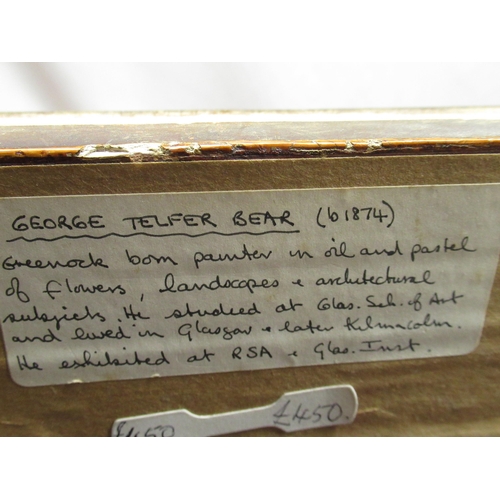 GEORGE TELFER BEAR (b1874)
Greenock born painter in oil and pastel
of flowers, landscapes + architectural
subjects. He studied at Glas. Sch. of Art
and lived in Glasgow + later Kilmacolm.
He exhibited at RSA + Glas. Inst.
£450.
£450